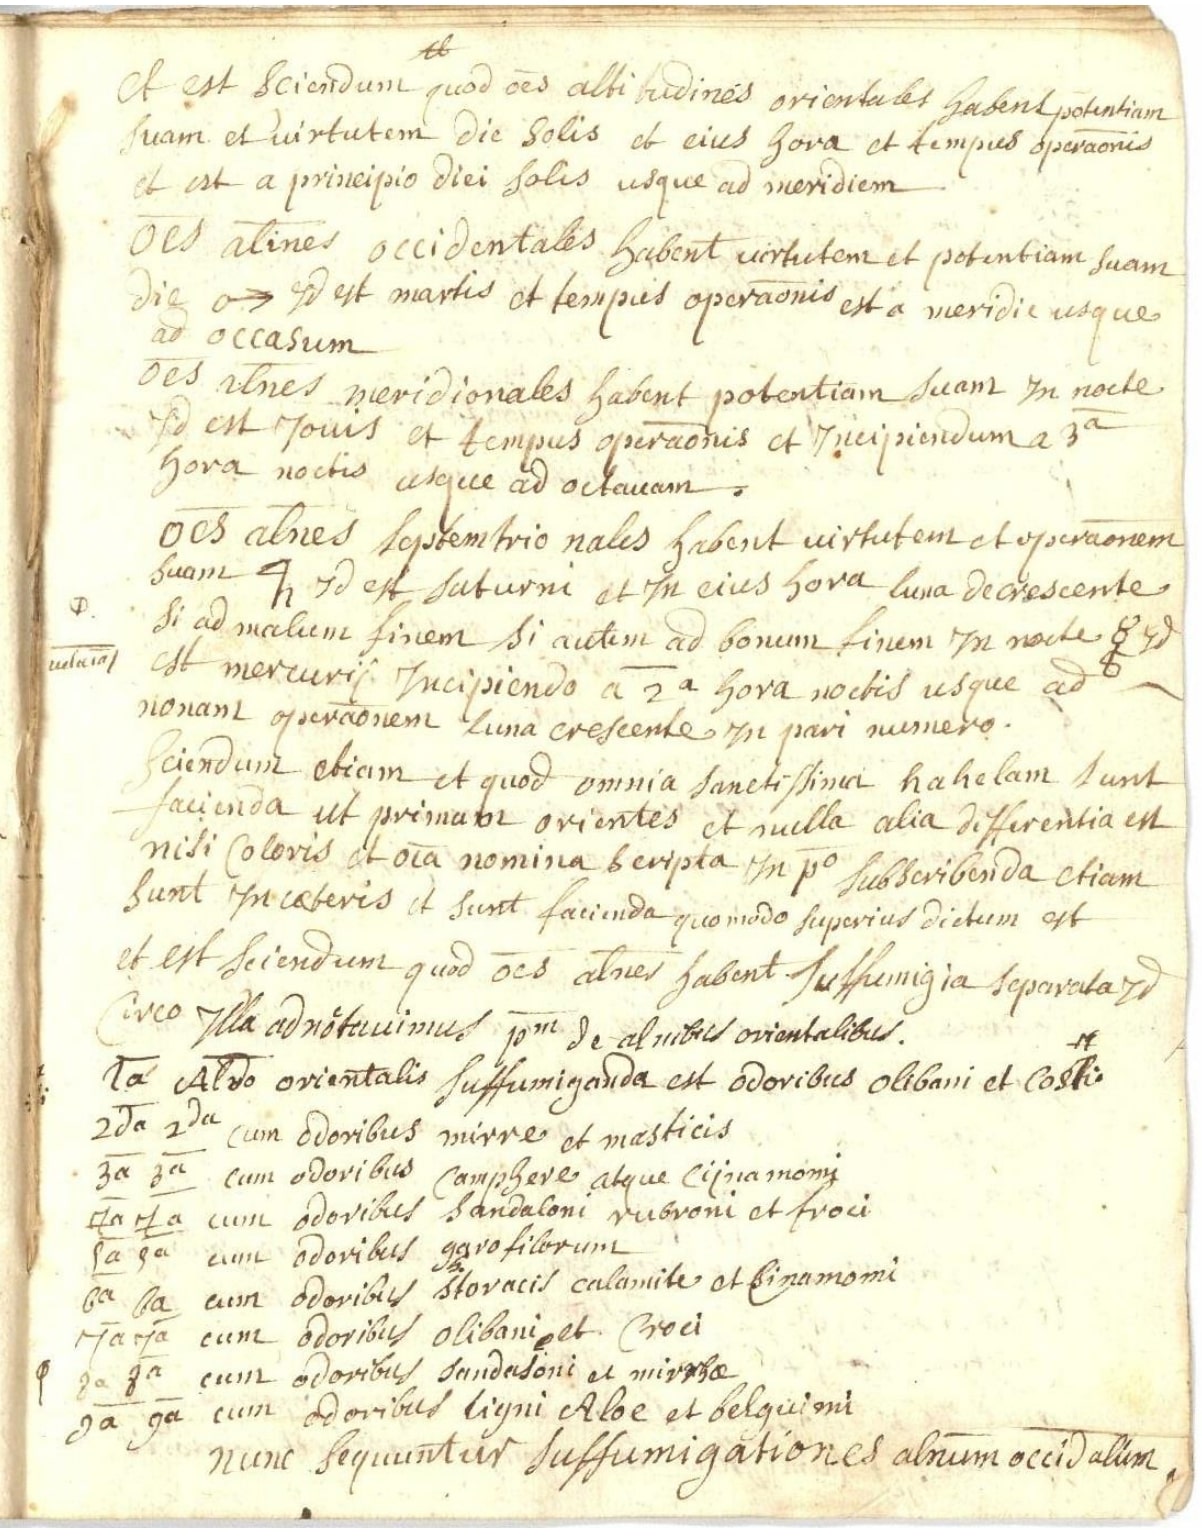 et est sciendum quod oēs altitudines orientales habent potentiam
suam et uirtutem die solis et eius hora et tempus operaōnis
et est a principio diei solis usque ad meridiem
Oēs alīnes occidentales habent uirtutem et potentiam suam
die ♂ yd est martis et tempus operaōnis est a meridie usque
ad occasum
Oēs alīnes meridionales habent potentiam suam yn nocte
yd est youis et tempus operaōnis et yncipiendum a 3ª
hora noctis usque ad octauam.
oēs alnēs septemtrionales habent uirtutem et operaōnem
suam ♄ yd est saturni et yn eius hora luna decrescente
si ad malum finem si autem ad bonum finem yn nocte ☿ yd
est mercurij yncipiendo a 2ª hora noctis usque ad
nonam operaōnem luna crescente yn pari numero.
Sciendum etiam et quod omnia sanctissima hahelam sunt
facienda ut primam orientes et nulla alia differentia est
nisi Coloris et oīa nomina scripta yn p̄º subscribenda etiam
sunt yn cæteris et sunt facienda quomodo superius dictum est
et est sciendum quod oēs alnes habent suffumigia separata yd
Circo ylla adnotauimus pm̄ de alnibus orientalibus.
1ª Altdo orientalis suffumiganda est odoribus olibani et Costi
2da 2da cum odoribus mirre et masticis
3ª 3ª cum odoribus Camphere atque Cijnamomi
4ª 4ª cum odoribus Sandaloni rubroni et froci
5ª 5ª cum odoribus garofilorum
6ª 6ª cum odoribus storacis calamite et Cinamomi
7ª 7ª cum odoribus olibani et Croci
8ª 8ª cum odoribus sandaloni et mirrhæ
9ª 9ª cum odoribus ligni Aloe et belguimi
nunc sequuntur suffumigationes alnūm occidalūm